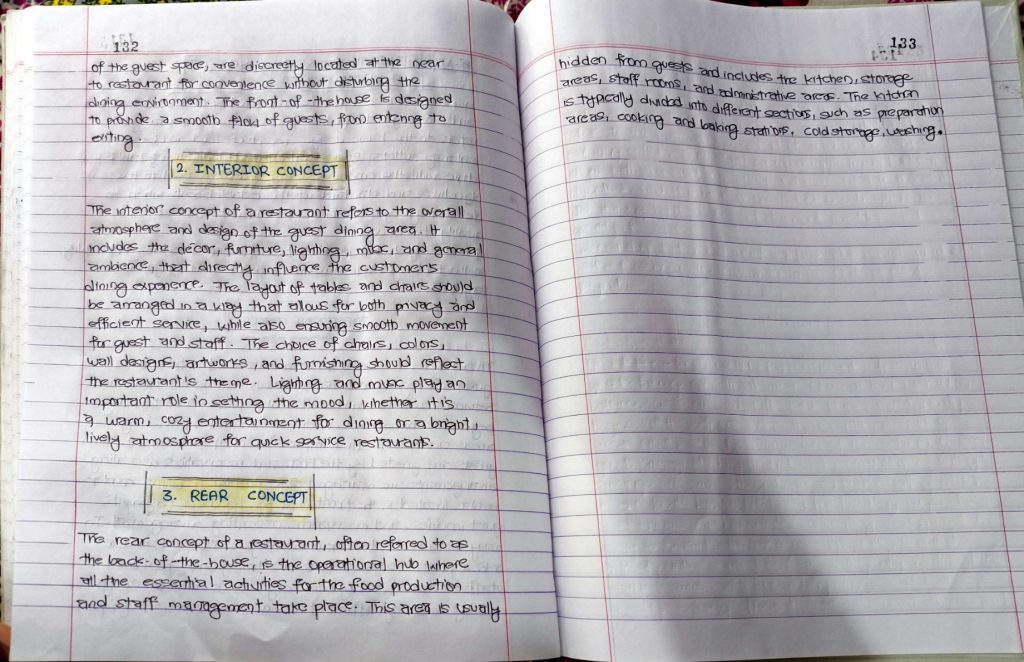 132
of the guest space, are discreetly located at the near
to restaurant for convenience without disturbing the
dining environment. The front-of-the house is designed
to provide a smooth flow of guests, from entering to
exiting.
2. INTERIOR CONCEPT
The interior concept of a restaurant refers to the overall
atmosphere and design of the guest dining area. It
includes the decor, furniture, lighting, music, and general
ambience, that directly influence the customer's
dining experience. The layout of tables and chairs should
be arranged in a way that allows for both privacy and
efficient service, while also ensuring smooth movement
for guest and staff. The choice of chairs, colors,
wall designs, artworks, and furnishing should reflect
the restaurant's theme. Lighting and music play an
important role in setting the mood, whether it is
a warm, cozy entertainment for dining or a bright,
lively atmosphere for quick service restaurants.
3. REAR CONCEPT
The rear concept of a restaurant, often referred to as
the back-of-the-house, is the operational hub where
all the essential activities for the food production
and staff management take place. This area is usually
133
hidden from guests and includes the kitchen, storage
areas, staff rooms, and administrative areas. The kitchen
is typically divided into different sections, such as preparation
areas, cooking and baking stations, cold storage, washing.